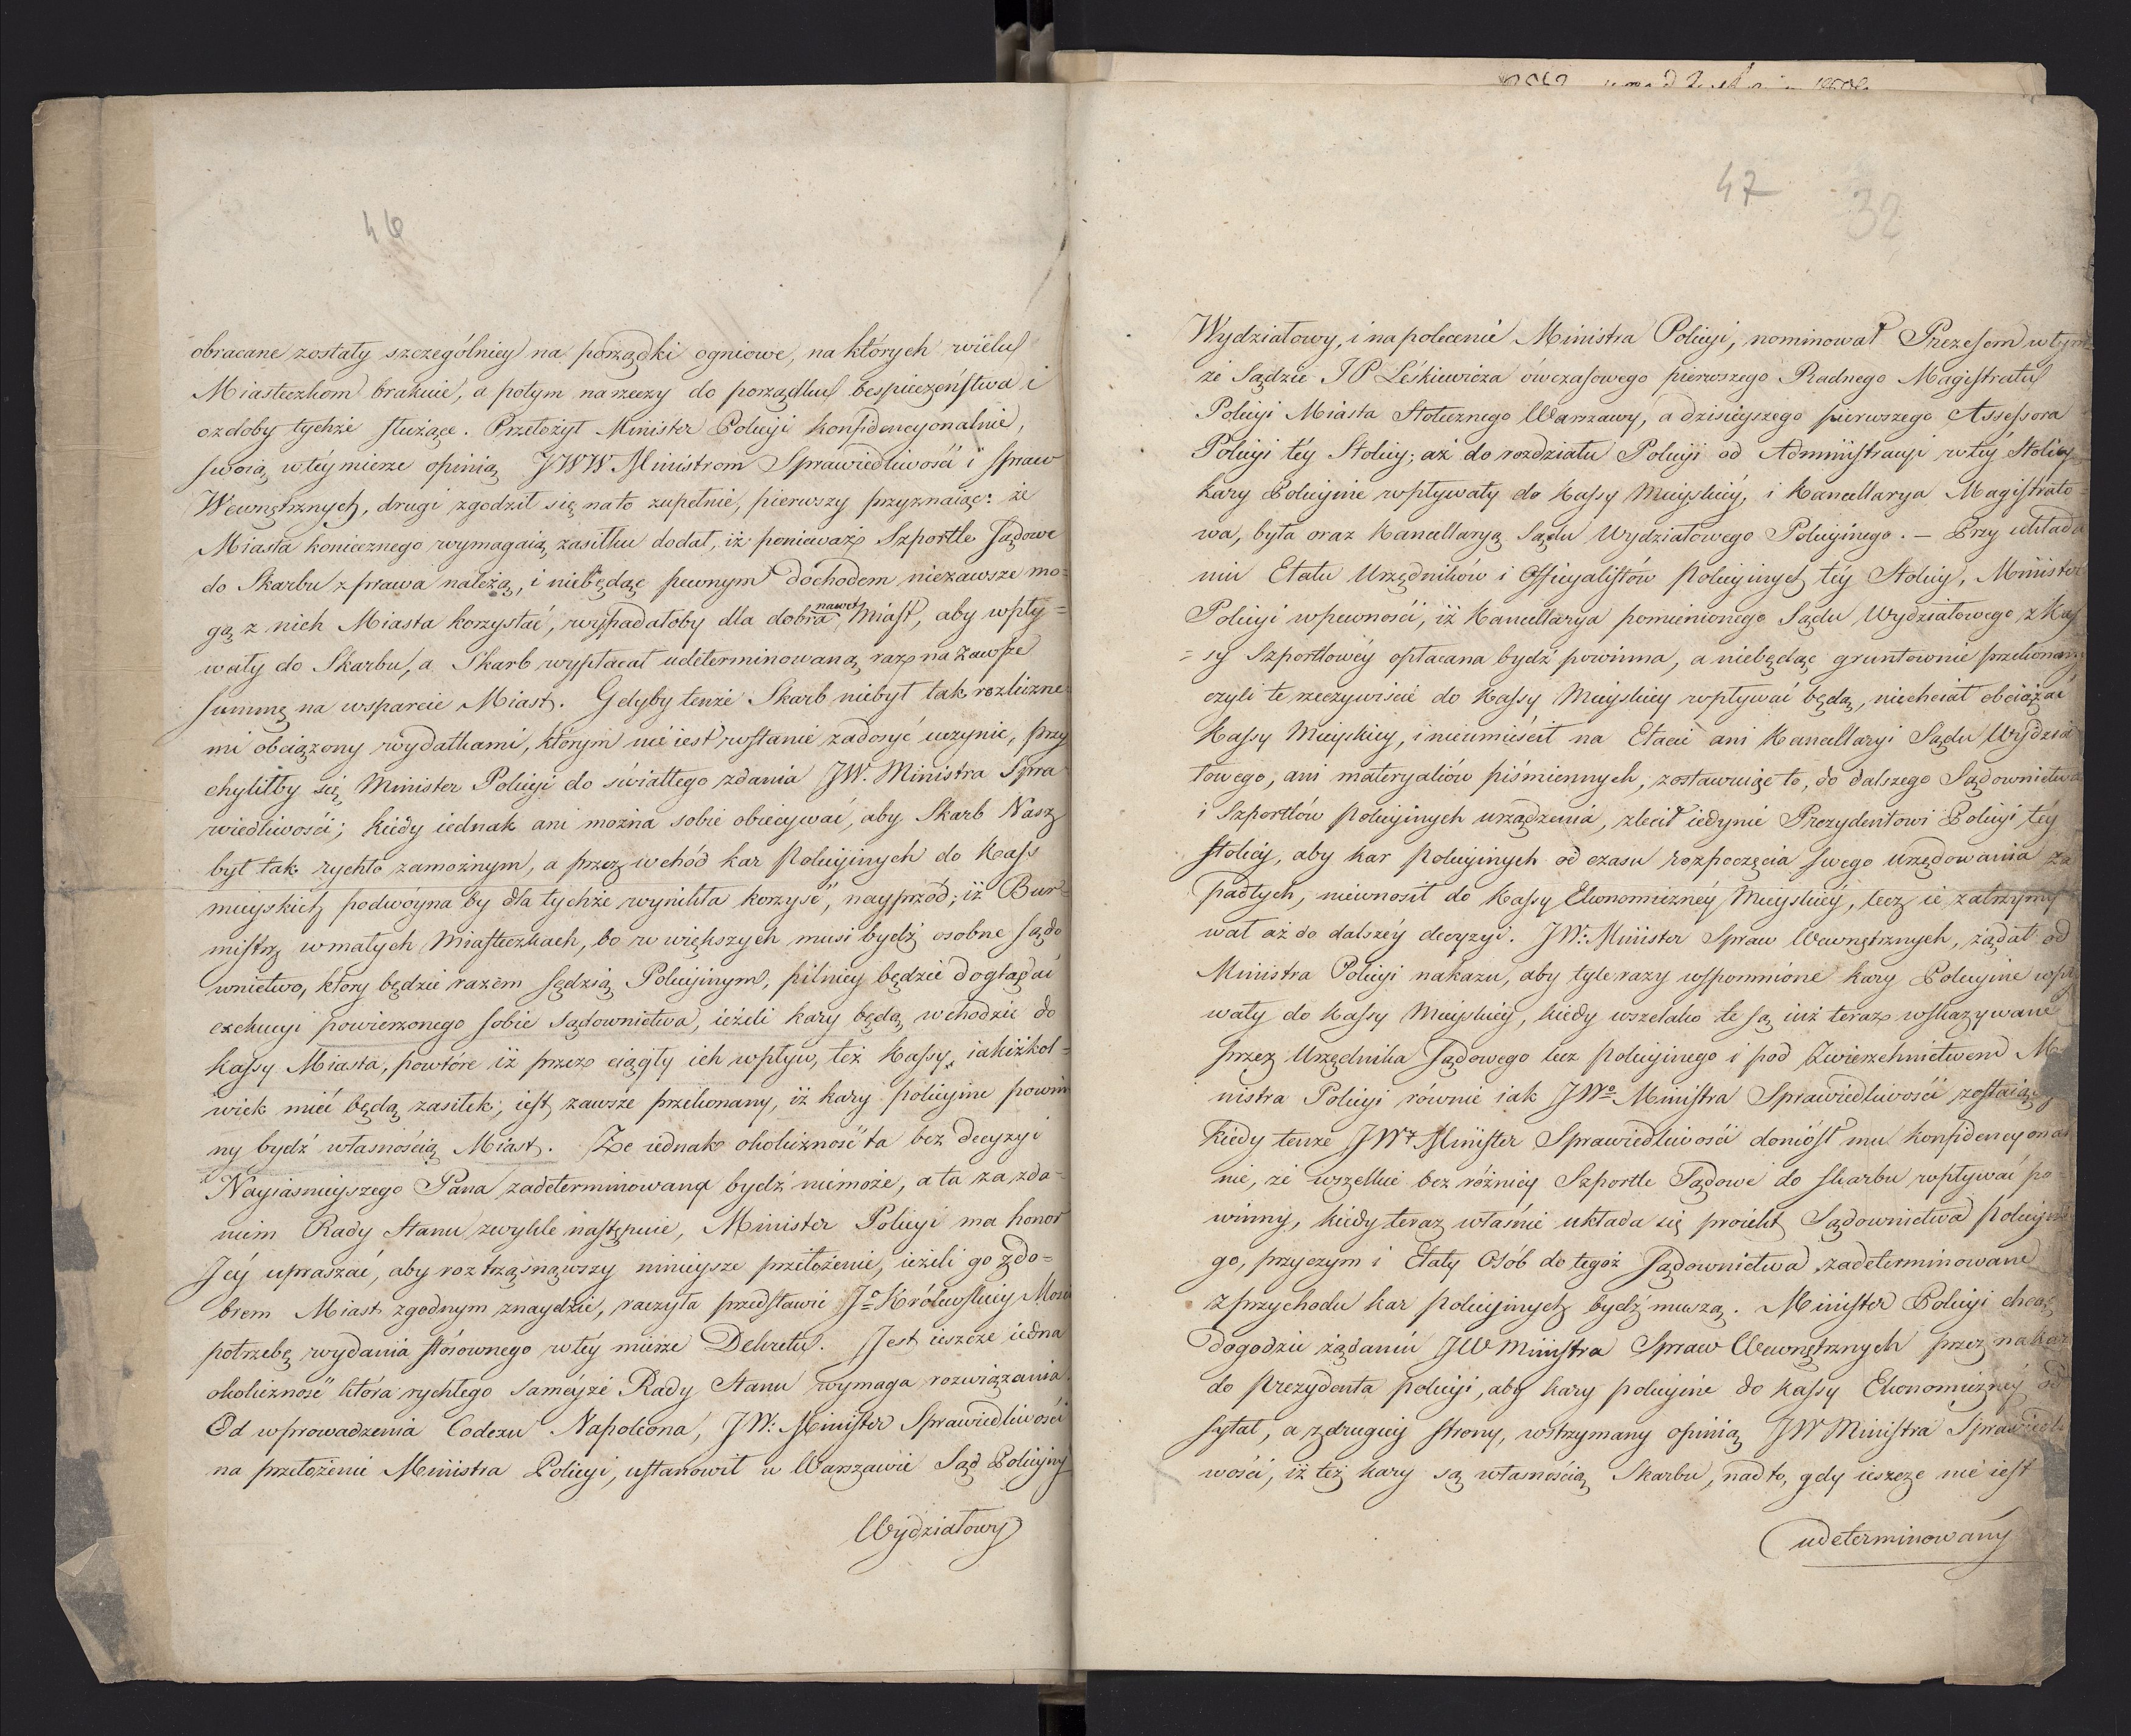 46
obracane zostały szczególniey na porządki ogniowe, na których wielu
Miasteczkom brakuie, a potym na rzeczy do porządku bespieczeństwa i
ozdoby tychże służące. Przełożył Minister Policyi konfidencyonalnie,
swoią w téy mierze opinią JWW Ministrom Sprawiedliwości i Spraw
Wewnętrznych, drugi zgodził się na to zupełnie, pierwszy przyznaiąc: że
Miasta koniecznego wymagaią zasiłku dodał, iż ponieważ Szportle Sądowe
do Skarbu z prawa należą, i niebędąc pewnym dochodem niezawsze mo=
gą z nich Miasta korzystać, wypadałoby dla dobra nawet Miast, aby wpły=
wały do Skarbu, a Skarb wypłacał udeterminowaną raz na zawsze
summę na wsparcie Miast. Gdyby tenże Skarb niebył tak rozliczne
mi obciążony wydatkami, którym nie iest wstanie zadosyć uczynić, przy
chyliłby się Minister Policyi do światłego zdania JW. Ministra Spra
wiedliwości; kiedy iednak ani można sobie obiecywać, aby Skarb Nasz
był tak rychło zamożnym, a przez wchód kar Policyinych do Kass
mieyskich podwóyna by dla tychże wynikła korzyść, nayprzód; iż Bur=
mistrz w małych Miasteczkach, bo w większych musi bydź osobne sądo
wnictwo, który będzie razem sędzią Policyinym, pilniey będzie doglądać
exekucyi powierzonego sobie sądownictwa, ieżeli kary będą wchodzić do
kassy Miasta, powtóre iż przez ciągły ich wpływ, też Kassy, iakiżkol=
wiek mieć będą zasiłek; iest zawsze przekonany, iż kary policyine powin
ny bydź własnością Miast. Że iednak okoliczność ta bez decyzyi
Nayiaśnieyszego Pana zadeterminowaną bydź niemoże, a ta za zda=
niem Rady Stanu zwykle następuie, Minister Policyi ma honor
Jéy upraszać, aby roztrząsnąwszy ninieysze przełożenie, ieżeli go z do=
brem Miast zgodnym znaydzie, raczyła przedstawić Jo Królewskiey Mości
potrzebę wydania stósownego w téy mierze Dekretu. Jest ieszcze iedna
okoliczność która rychłego saméyże Rady Stanu wymaga rozwiązania.
Od wprowadzenia Codexu Napoleona, JW: Minister Sprawiedliwości
na przełożenie Ministra Policyi, ustanowił w Warszawie Sąd Policyiny
Wydziałowy
47
32
Wydziałowy, i na polecenie Ministra Policyi, nominował Prezesem w tym
że Sądzie JP Leśkiewicza ówczasowego pierwszego Radnego Magistratu
Policyi Miasta Stołecznego Warszawy, a dzisieyszego pierwszego Assessora
Policyi téy Stolicy; aż do rozdziału Policyi od Administracyi w téy Stolicy
kary Policyine wpływały do Kassy Mieyskiéy, i Kancellarya Magistrato=
wa, była oraz Kancellaryą Sądu Wydziałowego Policyinego. — Przy układa
niu Etatu Urzędników i Officyalistów Policyinych téy Stolicy, Minister
Policyi w pewności, iż Kancellarya pomienionego Sądu Wydziałowego z Kas
=sy Szportlowéy opłacana bydź powinna, a niebędąc gruntownie przekonany
czyli te rzeczywiście do Kassy Mieyskiey wpływać będą, niechciał obciążać
Kassy Mieyskiey, i nieumieścił na Etacie ani Kancellaryi Sądu Wydzia
łowego, ani materyałów piśmiennych, zostawuiąc to, do dalszego Sądownictwa
i Szportlów Policyinych urządzenia, zlecił iedynie Prezydentowi Policyi téy
stolicy, aby kar Policyinych od czasu rozpoczęcia swego urzędowania za
padłych, niewnosił do Kassy Ekonomiczney Mieyskiéy, lecz ie zatrzymy
wał aż do dalszéy decyzyi. JW: Minister Spraw Wewnętrznych, żądał od
Ministra Policyi nakazu, aby tyle razy wspomnione kary Policyine wpły
wały do Kassy Mieyskiéy, kiedy wszelako te są iuż teraz wskazywane
przez Urzędnika Sądowego lecz policyinego i pod Zwierzchnictwem Mi
nistra Policyi równie iak JWo Ministra Sprawiedliwości zostaiące
kiedy tenże JW Minister Sprawiedliwości doniósł mu konfidencyonal
nie, że wszelkie bez różnicy Szportle Sądowe do skarbu wpływać po
winny, kiedy teraz właśnie układa się proiekt Sądownictwa policyine
go, przyczym i Etaty Osób do tegoż Sądownictwa zadeterminowane
z przychodu kar policyinych bydź muszą. Minister Policyi chcąc
dogodzić żądaniu JW Ministra Spraw Wewnętrznych przez nakaz
do Prezydenta policyi, aby kary policyine do kassy Ekonomiczney od
syłał, a z drugiey strony, wstrzymany opinią JW Ministra Sprawiedli
wości, iż też kary są własnością Skarbu, nadto, gdy ieszcze nie iest
udeterminowany